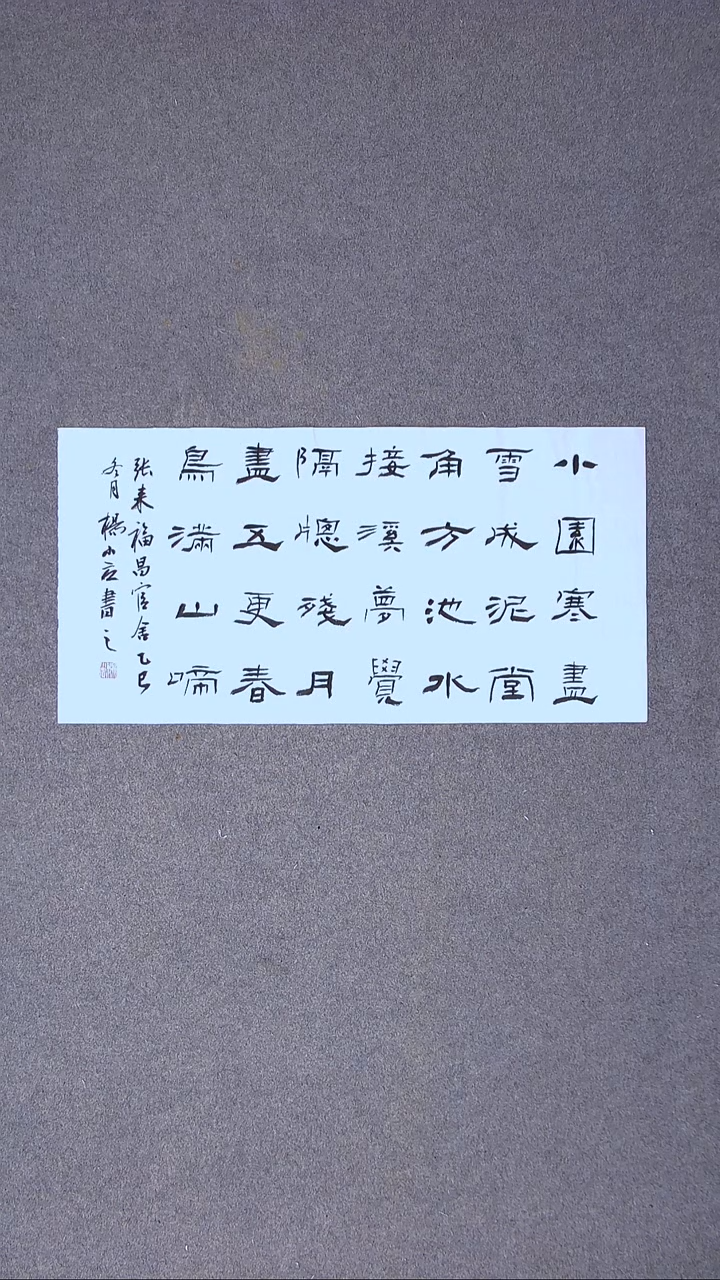 小園寒盡
雪成泥堂
角方池水
接溪夢覺
隔窻殘月
盡五更春
鳥滿山啼
张耒福昌官舍乙巳
冬月楊小应書之